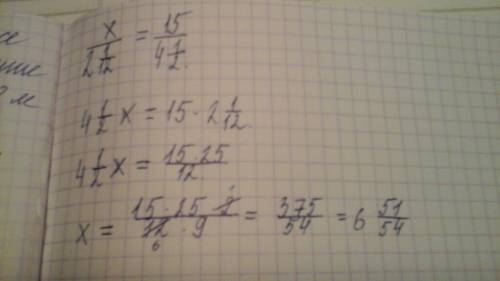 x / 2 1/12 = 15 / 4 1/2
4 1/2 x = 15 · 2 1/12
4 1/2 x = 15 · 25 / 12
x = 15 · 25 · 2 1 / 12 6 · 9 = 375 / 54 = 6 51/54